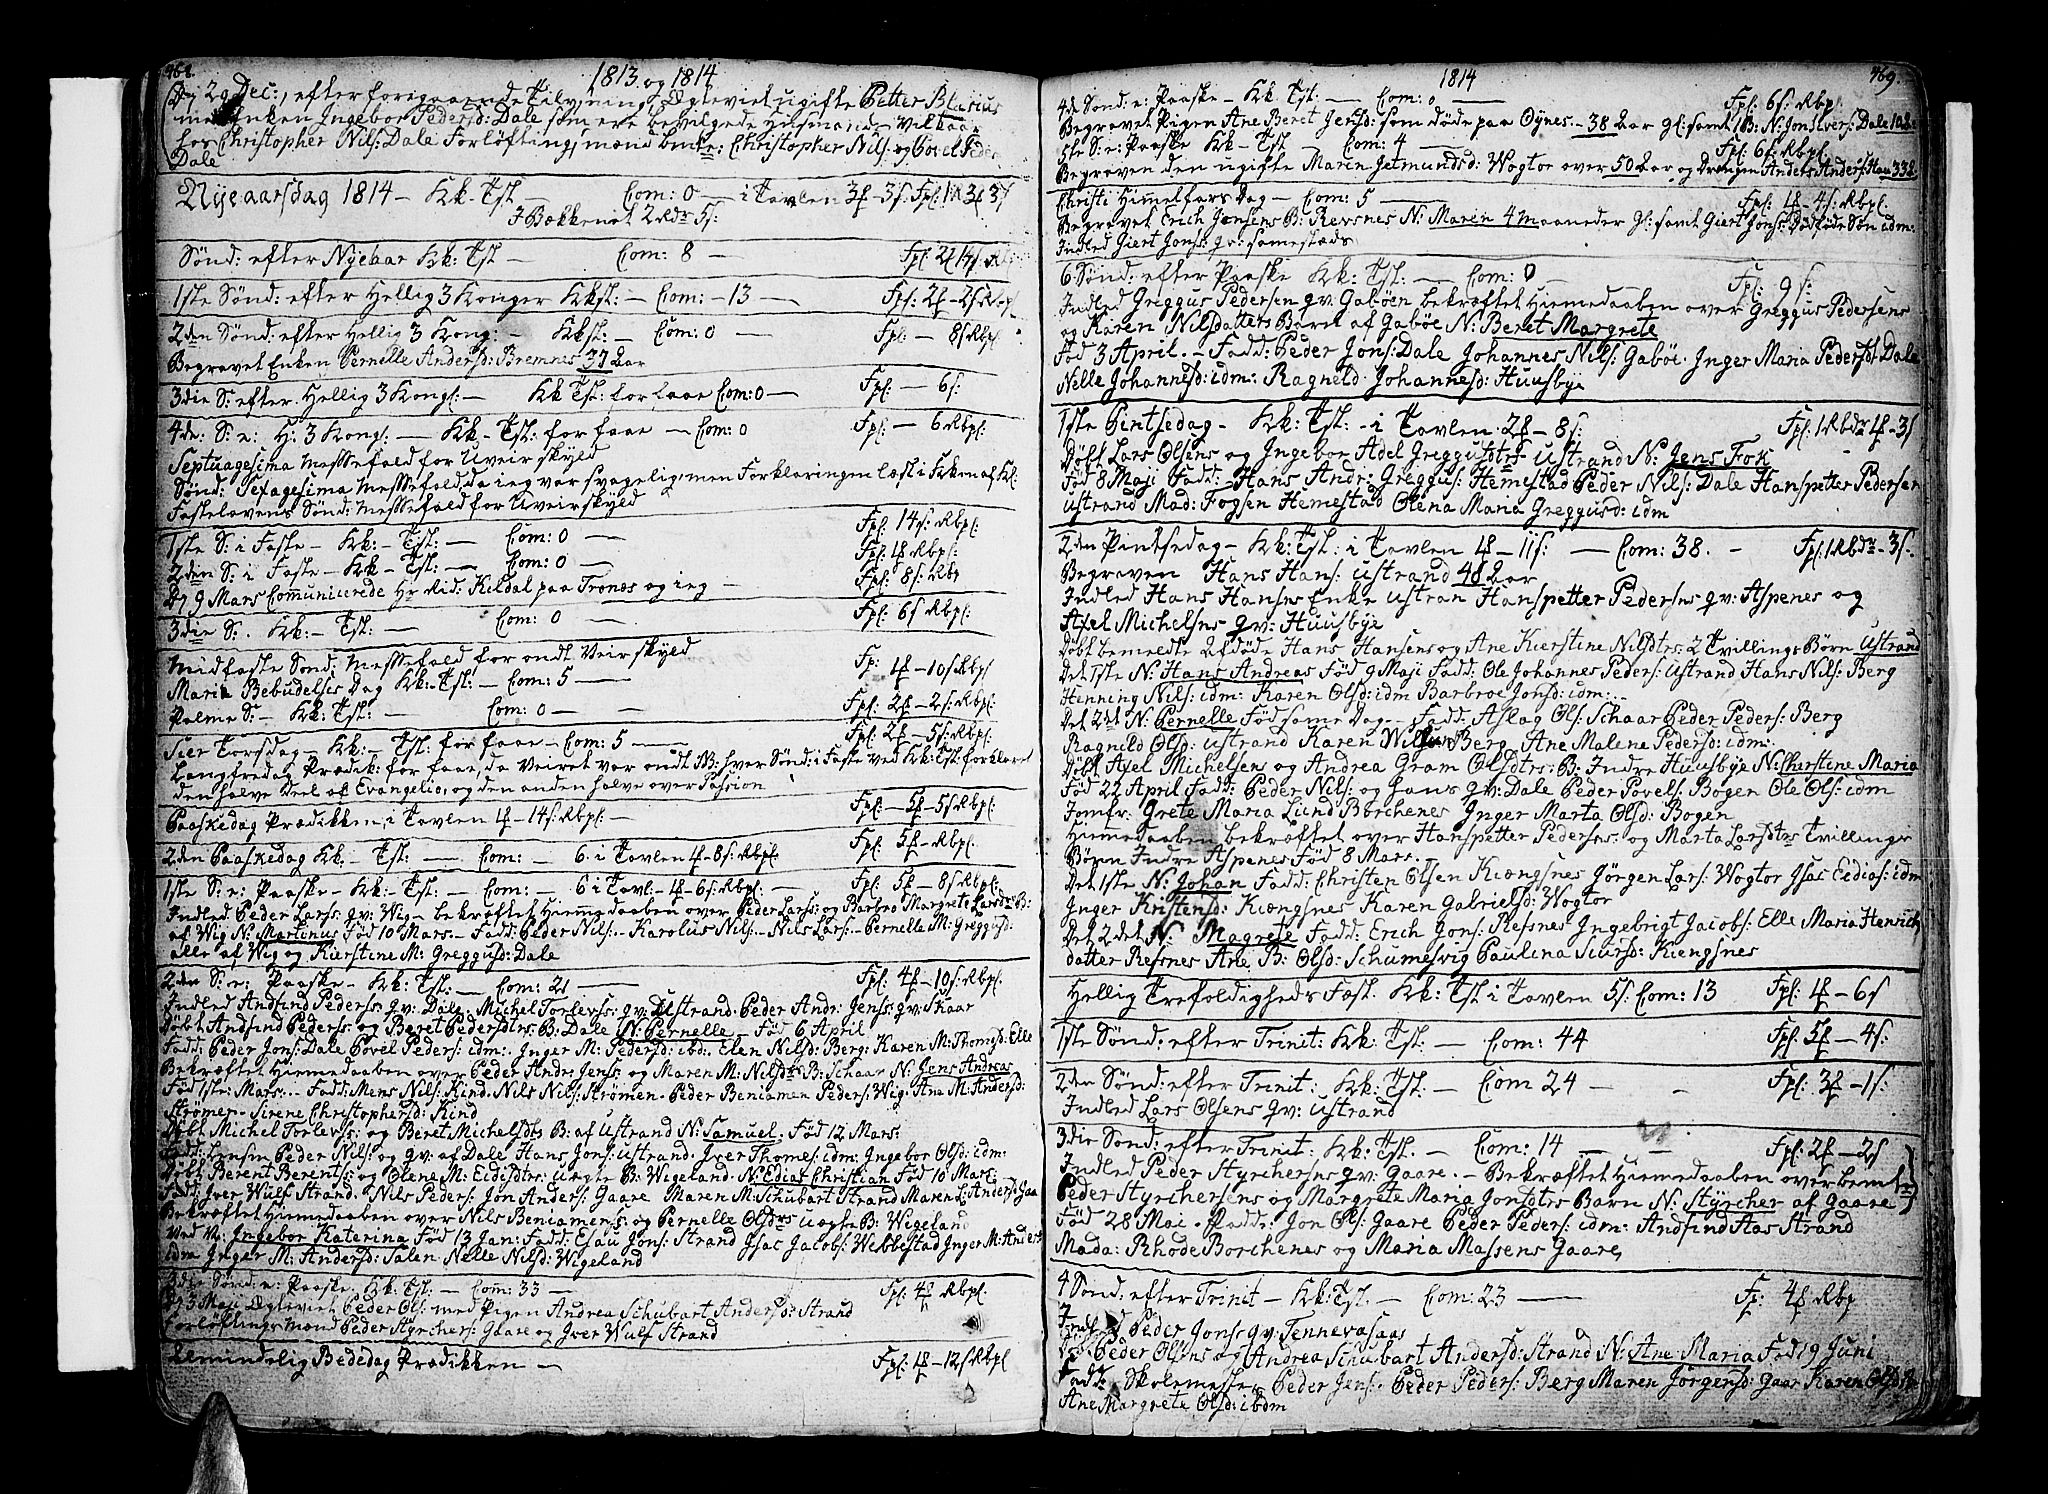 468.
1813 og 1814
Den 29 Dec:, efter foregaaende Tilysning Ægteviet ugifte Petter Blasius
med Enken Ingebor Pedersd: Dale som ere bevilgede Husmands Vilkaar
hos Christopher Nils: Dale Forløftings mænd bemte: Christopher Nils: og Povel Peder
Dale
Nyeaarsdag 1814 - Kk-Tst. - Com: 0 - i Tavlen 3f - 3s. Fpl:
I Bækkenet 2 Rdr 5s:
Sønd: efter Nyeaar Kk: Tst - Com: 8 - Fpl: 2f 14s
1ste Sønd: efter Hellig 3 Konger Kkst: - Com: - 13 - Fpl: 2f - 2s
2den Sønd: efter Hellig 3 Kong: - Kkst: - Com: 0 - Fpl: - 8s Rbpl:
Begravet Enken Pernelle Andersd: Bremnes 37 Aar
3die S: efter Hellig 3 Kong: - Kk Tst: for faae Com: 0 - Fpl: - 6s:
4de: S: e: H: 3 Kong: - Kk-Tst: for faae - Com: 0 Fpl: - 6 Rbpl:
Septuagesima Messefald for Uveirskyld
Sønd: Sexagesima Messefald, da ieg var svagelig, men Forklaringen læst i Kirken af Kl:
Fastelavens Sønd: Messefald for Uveirskyld
1ste S: i Faste - Kk: - Tst: - Com: 0 - Fpl: 14s: Rbpl:
2den S: i Faste - Kk - Tst: - Com: 0 - Fpl: 1f Rbpl:
Dg 9 Mars Communicerede Hr Rid: Kildal paa Tronæs og ieg - Fpl: 8s: Rbs
3die S:. Kk: - Tst: - Com: 0 - Fpl: 6s Rbpl:
Midfaste Sønd: Messefald for ondt Veirskyld
Maria Bebudelses Dag Kk: - Tst: - Com: 5 - Fp: 1f - 10s Rbpl
Palme S: - Kk: Tst: - Com: 0 - Fpl: 2f - 2s Rbpl:
Skier Torsdag - Kk: - Tst: for faae - Com: 5 - Fpl: 2f - 5s: Rbpl:
Langfredag Prædik: for faae, da Veiret var ondt NB: hver Sønd: i Faste ved Kk: Tst: forklaret
den halve Deel af Evangelio, og den anden halve over Passion
Paaskedag Prædikken, i Tavlen 4f - 14s: Rbpl: - Fpl: - 5f - 5s Rbpl:
2den Paaskedag Kk. - Tst: - Com: - 6 i Tavlen 4f - 8s: Rbpl: Fpl: 5f - Rbpl:
1ste S: e: Paaske - Kk: - Tst: - Com: - 6 i Tavl: - 4f - 6s: Rbpl: - Fpl: 5f - 8s: Rbpl:
Indled Peder Lars: qv: Wig - bekræftet Hiemmedaaben over Peder Lars: og Barbro Margrete Larsdr B:
af Wig N: Martinus Fød 10 Mars - Fadd: Peder Nils: - Karolus Nils: - Nils Lars: - Pernelle M: Greggusd:
alle af Wig og Kierstine M: Greggusd: Dale
2den S: e: Paaske - Kk: - Tst: - Com: 21 - Fpl: 4f - 10s: Rbpl:
Indled Andfind Peders: qv: Dale Michel Torlevs: qv: Ustrand. Peder Andr: Jens: qv: Skaar
Døbt Andfind Peders: og Beret Pedersdtrs: B: Dale N: Pernelle - Fød 6 April
Fadd: Peder Jons: Dale Povel Peders: idm: Inger M: Pedersd: ibd: Elen Nilsd: Berg: Karen M: Thomesd: Elle
Bekræftet Hiemmedaaben over Peder Andr: Jens: og Maren M: Nilsdtrs B: Schaar N: Jens Andreas
Fød 1ste: Mars - Fadd: Mens Nils: Kind. Nils Nils: Strømen - Peder Beniamen Peders: Wig: Ane M: Andersd:
Strømen - Sirene Christophersd: Kind
Døbt Michel Torlevs: og Beret Michelsdtrs B: af Ustrand N: Samuel. Fød 12 Mars:
Fadd: Lensm Peder Nils og qv: af Dale Hans Jons: Ustrand. Iver Thomes: idm: Ingebor Olsd: idm:
Døbt Berent Berents: og Olena M: Eidisdtrs: uægte B: Wigeland. N: Edias Christian Fød 10 Mart:
Fadd: Iver Wulf Strand. Nils Peders: Jon Anders: Gaare Maren M: Schubart Strand Maren L: Andersd: Gaa
Bekræftet Hiemmedaaben over Nils Beniamens: og Pernelle Olsdtrs uægte B: Wigeland
Ved N: Ingebor Katerina Fød 13 Jan: Fadd: Esau Jons: Strand Isac Jacobs: Webbestad Inger M: Anders
idm Inger M: Andersd: Salen Nelle Nilsd: Wigeland
3die Sønd: e: Paaske. Kk: Tst: - Com: 33 - Fpl: 4f Rbpl:
Dg 3 Maji Ægteviet Peder Ols: med Pigen Andrea Schubart Andersd: Strand
Forløftings mænd Peder Styrchers: Gaare og Iver Wulf Strand
Almindelig Bededag Prædikken - Fpl: 1f - 12s Rbpl:
469.
1814
4de Sønd: e: Paaske - Kk: Tst: - Com: 0 - Fpl: 6s: Rbpl
Begravet Pigen Ane Beret Jensd: som døde paa Øynes - 38 Aar gl: samt 1 B: N: Jon Ivers: Dale
5te S: e: Paaske Kk - Tst - Com: 4 - Fpl: 6s: Rbpl
Begraven den ugifte Maren Jetmundsd: Wogtor over 50 Aar og Drengen Anders Anders: Hau
Christi Himmelfars Dag - Com: 5 - Fpl: 4f - 4s: Rbpl:
Begravet Erich Jonsens B: Revsnes N: Marin 4 Maaneder gl: samt Giert Jons: Dødfødte Søn idm:
Indled Giert Jons: qv: samestæds
6 Sønd: efter Paaske Kk: Tst: - Com: 0 - Fpl: 9s:
Indled Greggus Pedersen qv: Gabøen bekræftet Hiemmedaaben over Greggus Pedersens
og Karen Nilsdatters Barn af Gabøe N: Beret Margrete
Fød 3 April. - Fadd: Peder Jons: Dale Johannes Nils: Gabøe. Inger Maria Pedersd: Dale
Nelle Johannesd: idm: Ragneld Johannesd: Huusbye
1ste Pintsedag - Kk: Tst: - i Tavlen 2f - 8s: Fpl: 1 Rbdr 4f - 3s
Døbt Lars Olsens og Ingebor Adel Greggusdtrs Ustrand N: Jens Fok
Fød 8 Maji Fadd: Hans Andr: Greggus: Hemestad Peder Nils: Dale Hanspetter Pedersen
Ustrand Mad: Fogsen Hemestad Olena Maria Greggusd: idm
2den Pintsedag - Kk: Tst: i Tavlen 4f - 11s: - Com: 38. - Fpl: 1 Rbdr - 3s.
Begraven Hans Hans: Ustrand 48 Aar
Indled Hans Hansens Enke Ustran Hanspetter Pedersns qv: Aspenes og
Axel Michelsns qv: Huusbye
Døbt bemeldte Afdøde Hans Hansens og Ane Kierstine Nilsdtrs: 2 Tvillings Børn Ustrand
Det 1ste N: Hans Andreas Fød 9 Maji Fadd: Ole Johannes Peders: Ustrand Hans Nils: Berg
Henning Nils: idm: Karen Olsd: idm Barbroe Jonsd: idm: -
Det 2det N: Pernelle Fød same Dag - Fadd: Aslag Ols: Schaar Peder Peders: Berg
Ragnild Olsd: Ustrand Karen Berg Ane Malene Pedersd: idm:
Døbt Axel Michelsens og Andrea Gram Olsdtrs: B: Indre Huusbye N: Chirstine Maria
Fød 22 April Fadd: Peder Nils: og Hans qv: Dale Peder Povels: Bogen Ole Ols: idm
Jomfr: Grete Maria Lund Borchenes Inger Marta Olsd: Bogen
Hiemmedaaben bekræftet over Hanspetter Pedersns: og Marta Larsdtrs Tvillinge
Børn Indre Aspenes Fød 8 Mars.
Det 1ste N: Johan Fadd: Christen Olsen Kiængsnes Jørgen Lars: Wogtor Isac Edias: idm
Inger Kristensd: Kiængsnes Karen Gabrielsd: Wogtor
Det 2det N: Magrete Fadd: Erich Jons: Refsnes Ingebrigt Jacobs: Elle Maria Henrich
datter Refsnes Ane B: Olsd: Schumesvig Paulina Siursd: Kiengsnes
Hellig Trefoldigheds Fæst. Kk: Tst i Tavlen 5s: Com: 13 Fpl: 4f - 6s
1ste Sønd: efter Trinit: Kk: Tst: - Com: 44 Fpl: 5f - 4s:
2den Sønd: efter Trinit: Kk: Tst: - Com 24 - Fpl: 3f - 1s:
Indled Lars Olsens qv: Ustrand
3die Sønd: efter Trinit: Kk: Tst. - Com: 14 - Fpl: 2f - 2s
Indled Peder Styrchersns qv: Gaare. - Bekræftet Hiemedaaben over bemte
Peder Styrchersens og Margrete Maria Jonsdtrs Barn N: Styrcher af Gaare
Fød 28 Mai - Fadd: Jon Ols: Gaare Peder Peders: idm: Andfind Aas Strand
Mada: Rhode Borchenes og Maria Massens Gaare,
4 Sønd: efter Trinit - Kk: Tst. - Com: 23 - Fp: 4f Rbp
Indled Peder Jons: qv: Tennevasaas
Døbt Peder Olsens og Andrea Schubart Andersd: Strand N: Ane Maria Fød 19 Juni
Fadd: Skolemester Peder Jens: Peder Peders: Berg Maren Jørgensd: Gaar Karen Olsd
Ane Margrete Olsd: ibdm